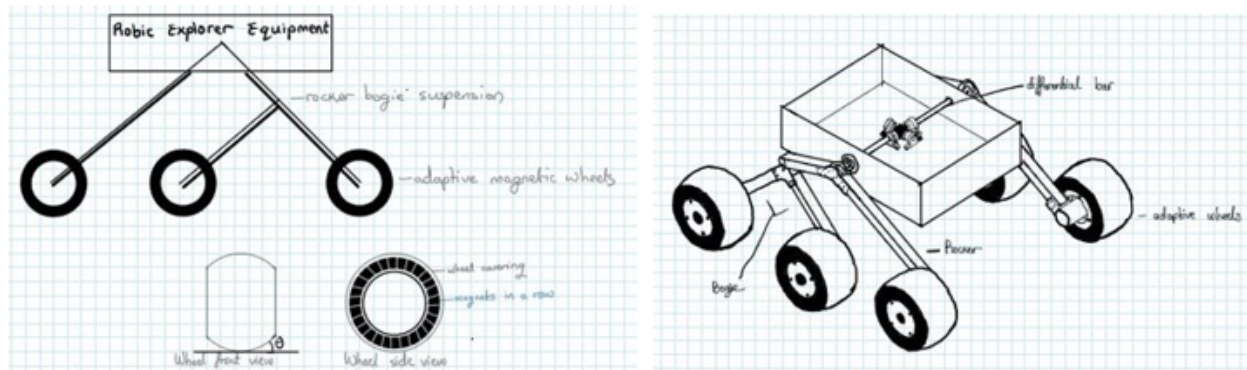 Robic Explorer Equipment
rocker bogie suspension
adaptive magnetic wheels
wheel covering
magnets in a row
θ
Wheel front view
Wheel side view
differential bar
adaptive wheels
Rocker
Bogie